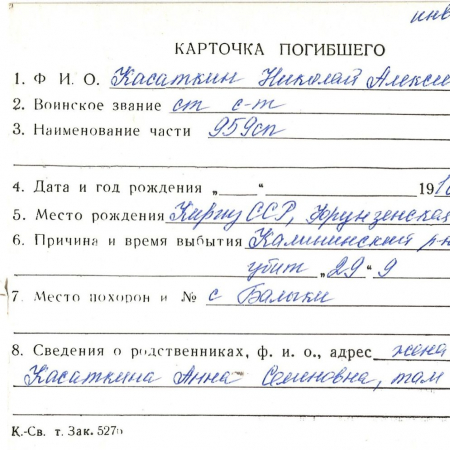 инв
КАРТОЧКА ПОГИБШЕГО
1. Ф. И. О. Касаткин Николай Алексе
2. Воинское звание ст с-т
3. Наименование части 959сп
4. Дата и год рождения „ “ 191
5. Место рождения Киргиз ССР, Фрунзенская
6. Причина и время выбытия Калининский р-н
убит „29“ 9
7. Место похорон и № с Балыки
8. Сведения о родственниках, ф. и. о., адрес жена
Касаткина Анна Семеновна, там
К.-Св. т. Зак. 527